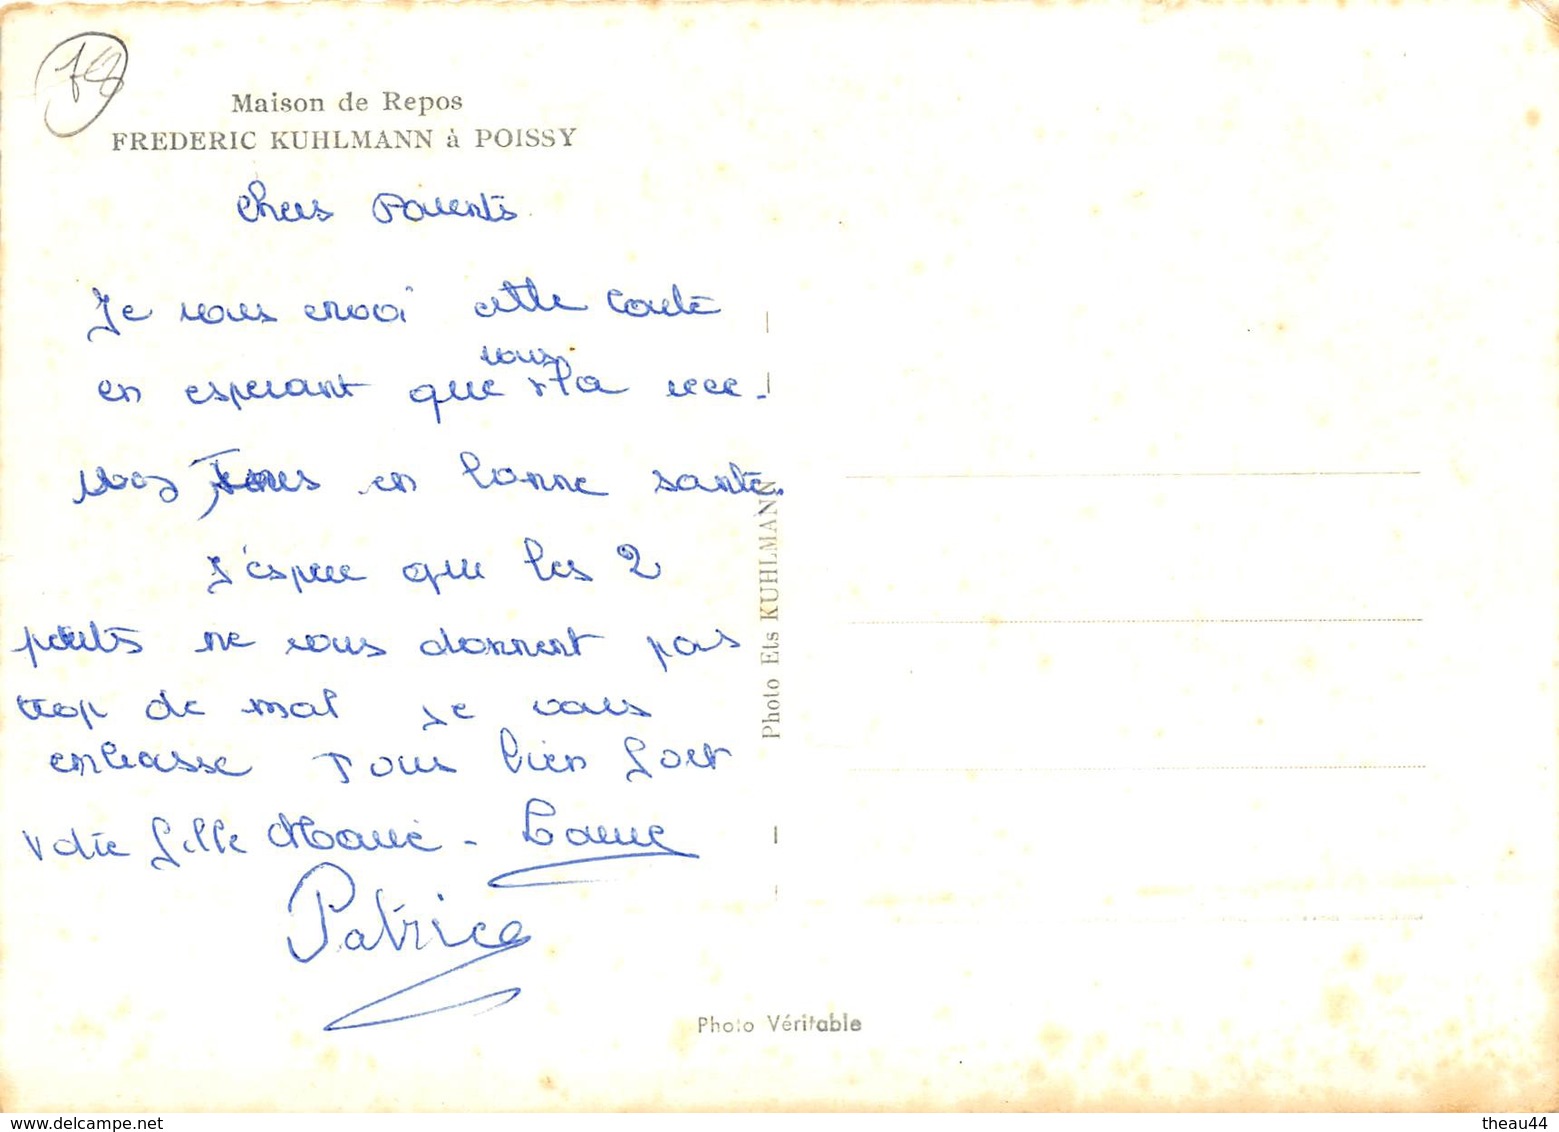 78
Maison de Repos
FREDERIC KUHLMANN à POISSY
Chers Parents
Je vous envoi cette carte
vous
en esperant que la rece-
vez Tous en bonne santé.
J'espere que les 2
petits ne vous donnent pas
trop de mal je vous
embrasse Tous bien fort
votre fille Marie-
Patrice
Photo Ets KUHLMANN
Photo Véritable
theau44